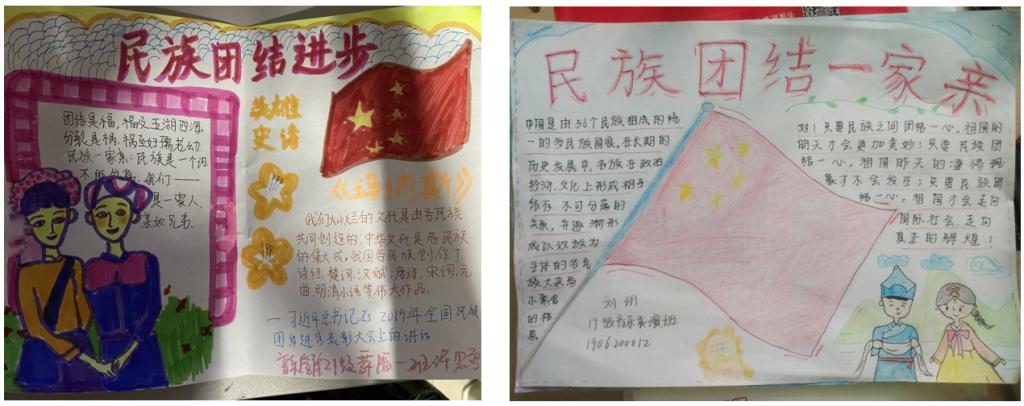 民族团结进步
团结是福，福及五湖四海，
分裂是祸，祸至妇孺老幼
民族一家亲：民族是一个词
我们——
是一家人，
亲如兄弟
英雄
史诗
我们灿烂的文化是由各民族
共同创造的，中华文化是各民族
的集大成。我国各民族创作了
诗经、楚词、汉赋、唐诗、宋词、元
曲，明清小说等伟大作品。
—习近平总书记在2019年全国民族
团结进步表彰大会上的讲话
民族团结一家亲
中国是由56个民族组成的统
一的多民族国家，在长期的
历史发展中，各族在政治
经济、文化上形成相互
依存、不可分离的
关系，并逐渐形
成以汉族为
主体的各民
族大杂居
小聚居
的格
局
对！只要民族之间团结一心，祖国的
明天才会更加美妙；只要民族团
结一心，祖国昨天的
才不会发生；只要民族团
结一心，祖国才会走向
国际社会，走向
真正的辉煌！
刘玥
19级音乐表演班
1906200012